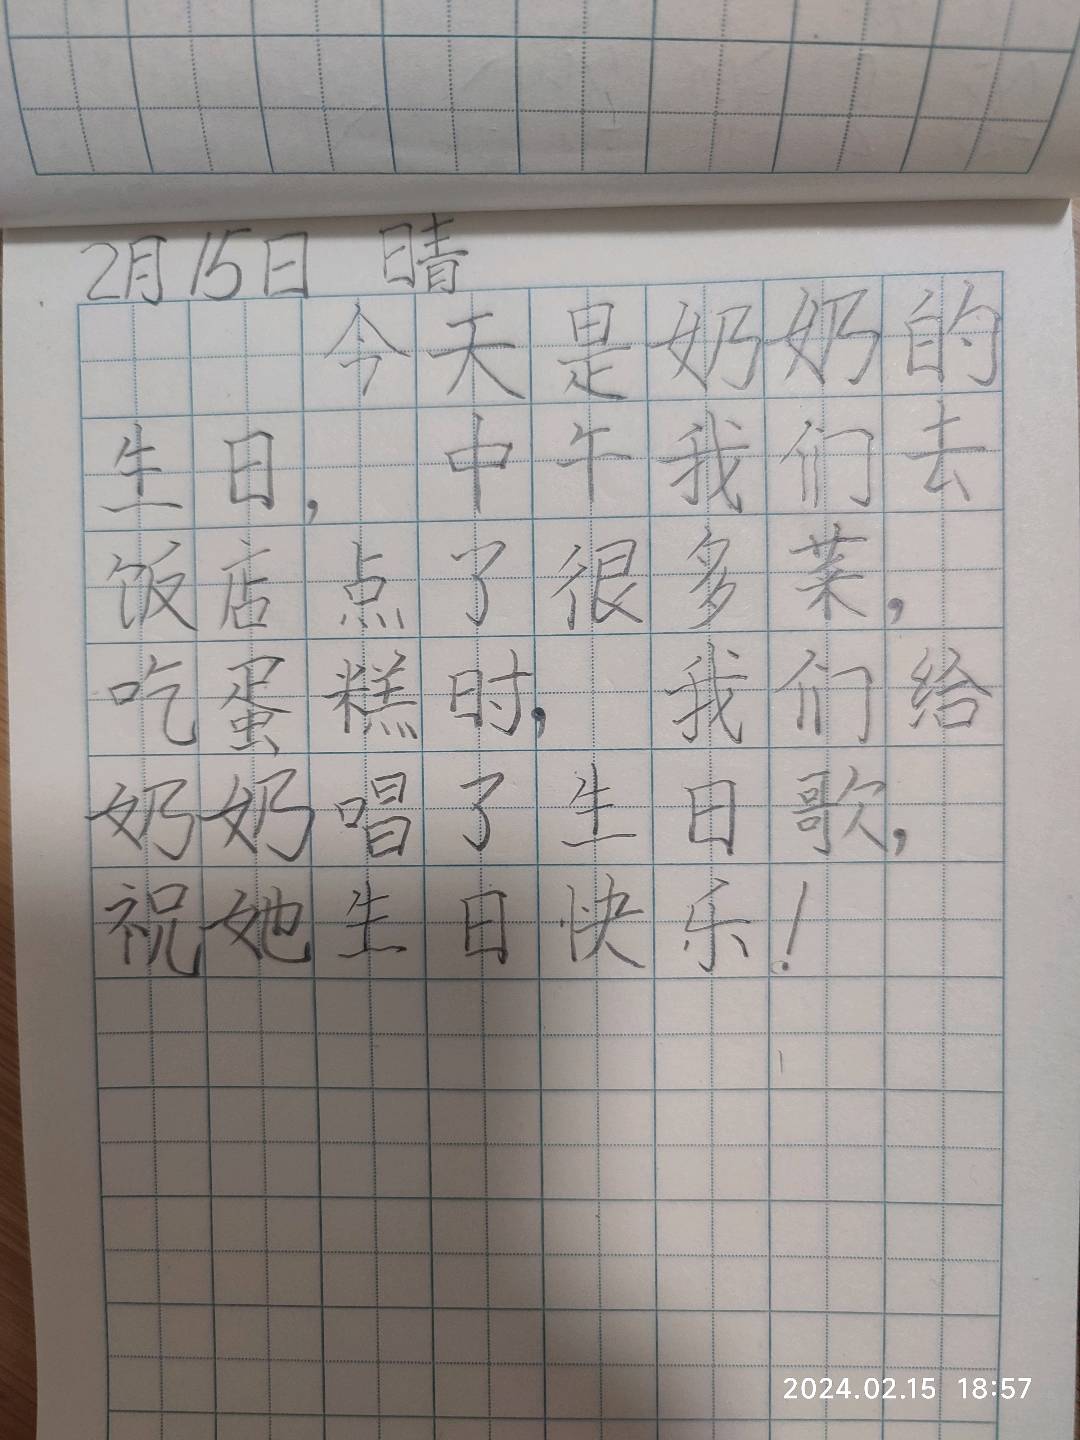 2月15日 晴
今天是奶奶的
生日, 中午我们去
饭店点了很多菜,
吃蛋糕时, 我们给
奶奶唱了生日歌,
祝她生日快乐!
2024.02.15 18:57